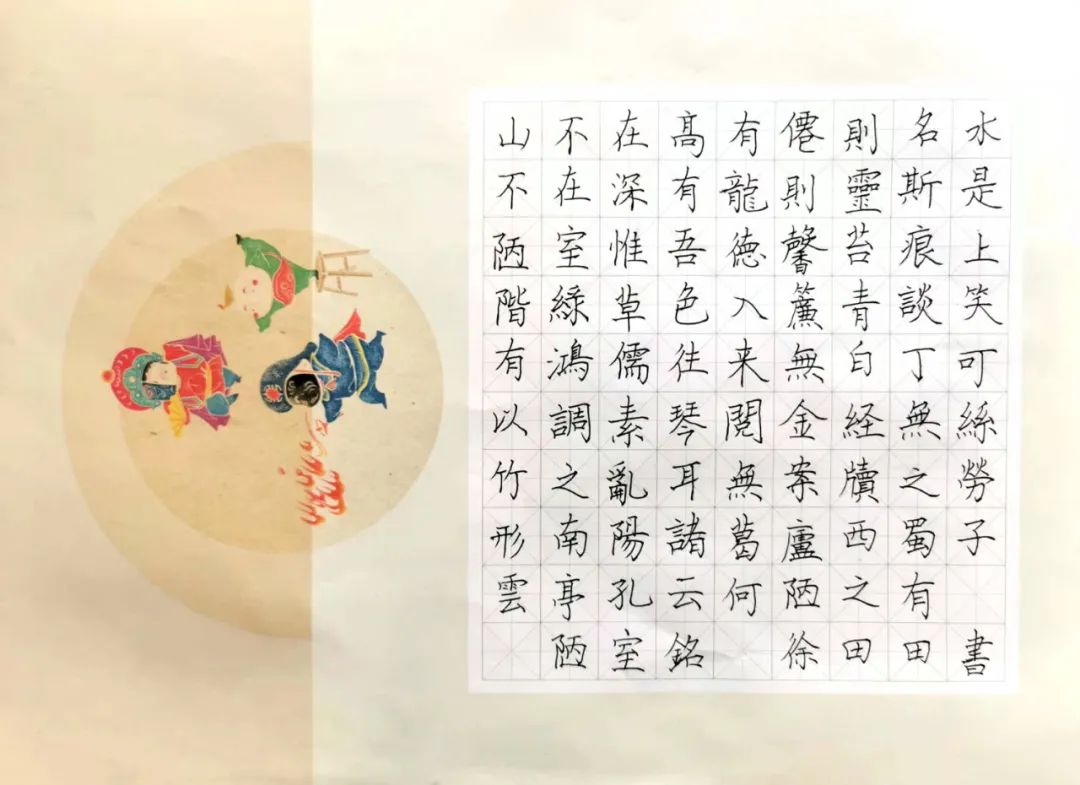 山不在髙有僊則名水
不在深有龍則靈斯是
陋室惟吾德馨苔痕上
階綠草色入簾青談笑
有鴻儒往来無白丁可
以調素琴閱金経無絲
竹之亂耳無案牘之勞
形南陽諸葛廬西蜀子
雲亭孔云何陋之有
陋室銘 徐田田書